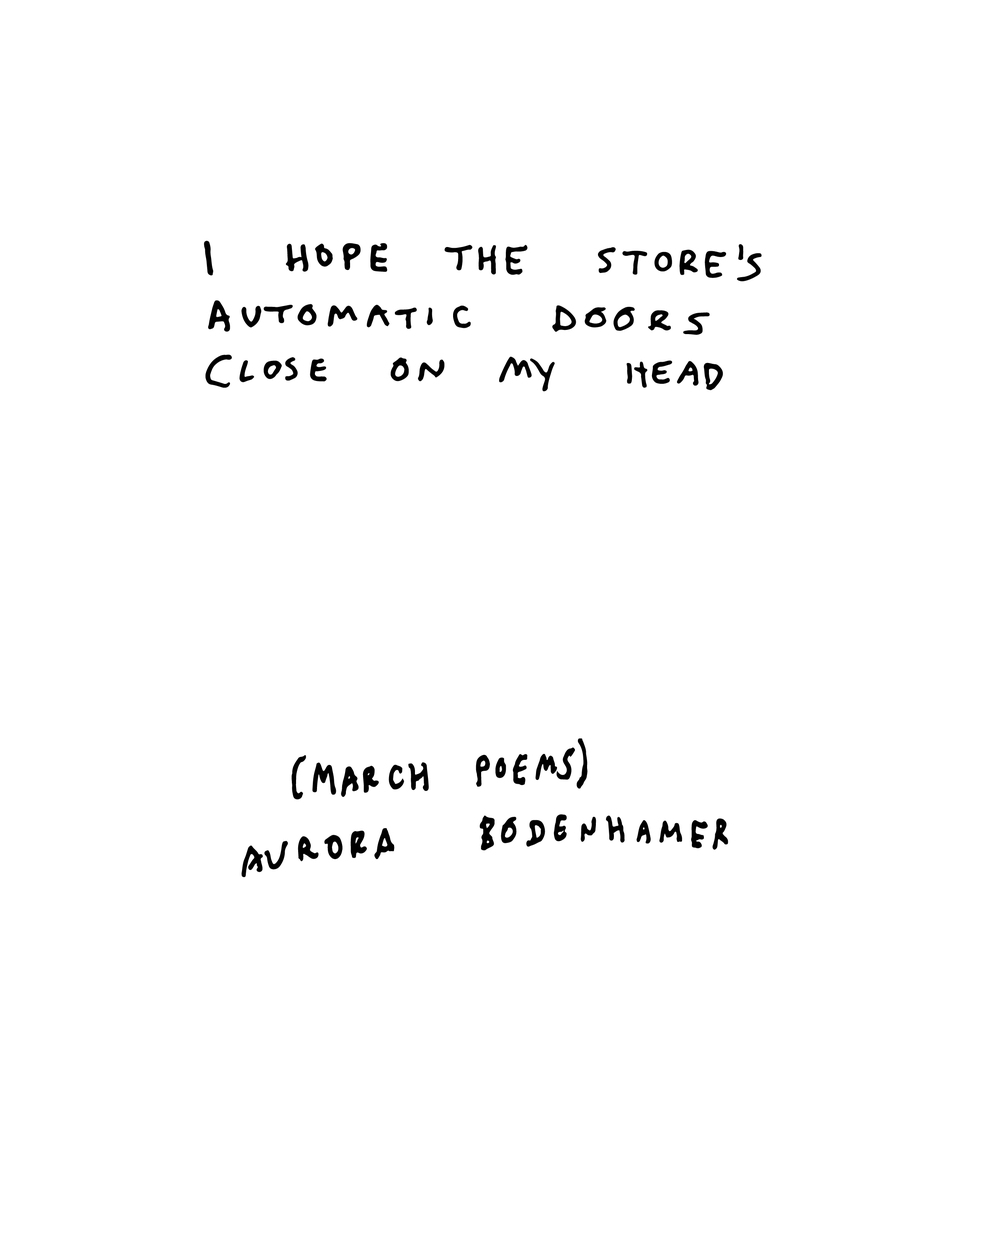 I HOPE THE STORE'S
AUTOMATIC DOORS
CLOSE ON MY HEAD
(MARCH POEMS)
AURORA BODENHAMER